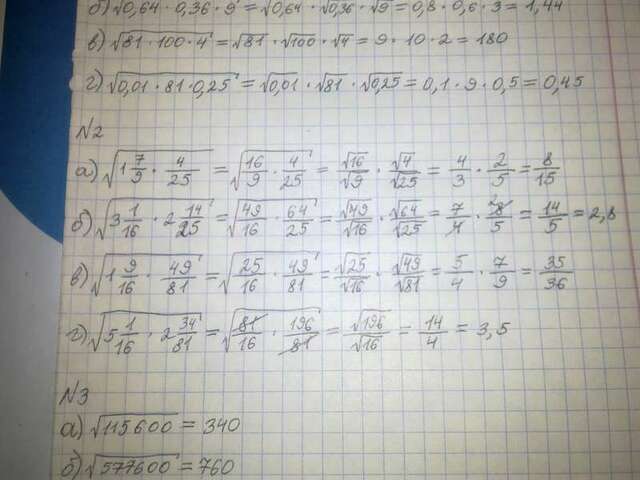 б) √0,64 · 0,36 · 9 = √0,64 · √0,36 · √9 = 0,8 · 0,6 · 3 = 1,44
в) √81 · 100 · 4 = √81 · √100 · √4 = 9 · 10 · 2 = 180
г) √0,01 · 81 · 0,25 = √0,01 · √81 · √0,25 = 0,1 · 9 · 0,5 = 0,45
№2
а) √1 7/9 · 4/25 = √16/9 · 4/25 = √16/√9 · √4/√25 = 4/3 · 2/5 = 8/15
б) √3 1/16 · 2 14/25 = √49/16 · 64/25 = √49/√16 · √64/√25 = 7/4 · 8/5 = 14/5 = 2,8
в) √1 9/16 · 49/81 = √25/16 · 49/81 = √25/√16 · √49/√81 = 5/4 · 7/9 = 35/36
г) √5 1/16 · 2 34/81 = √81/16 · 196/81 = √196/√16 = 14/4 = 3,5
№3
а) √115600 = 340
б) √577600 = 760